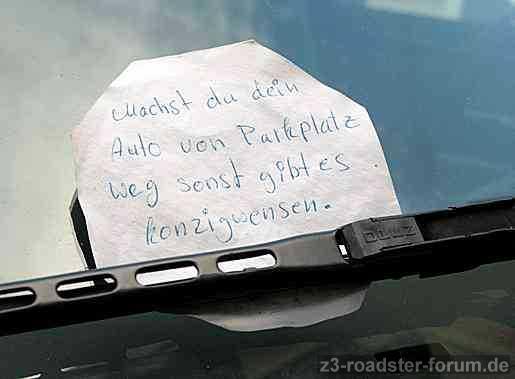 Machst du dein
Auto von Parkplatz
weg sonst gibt es
konzigwensen.
z3-roadster-forum.de